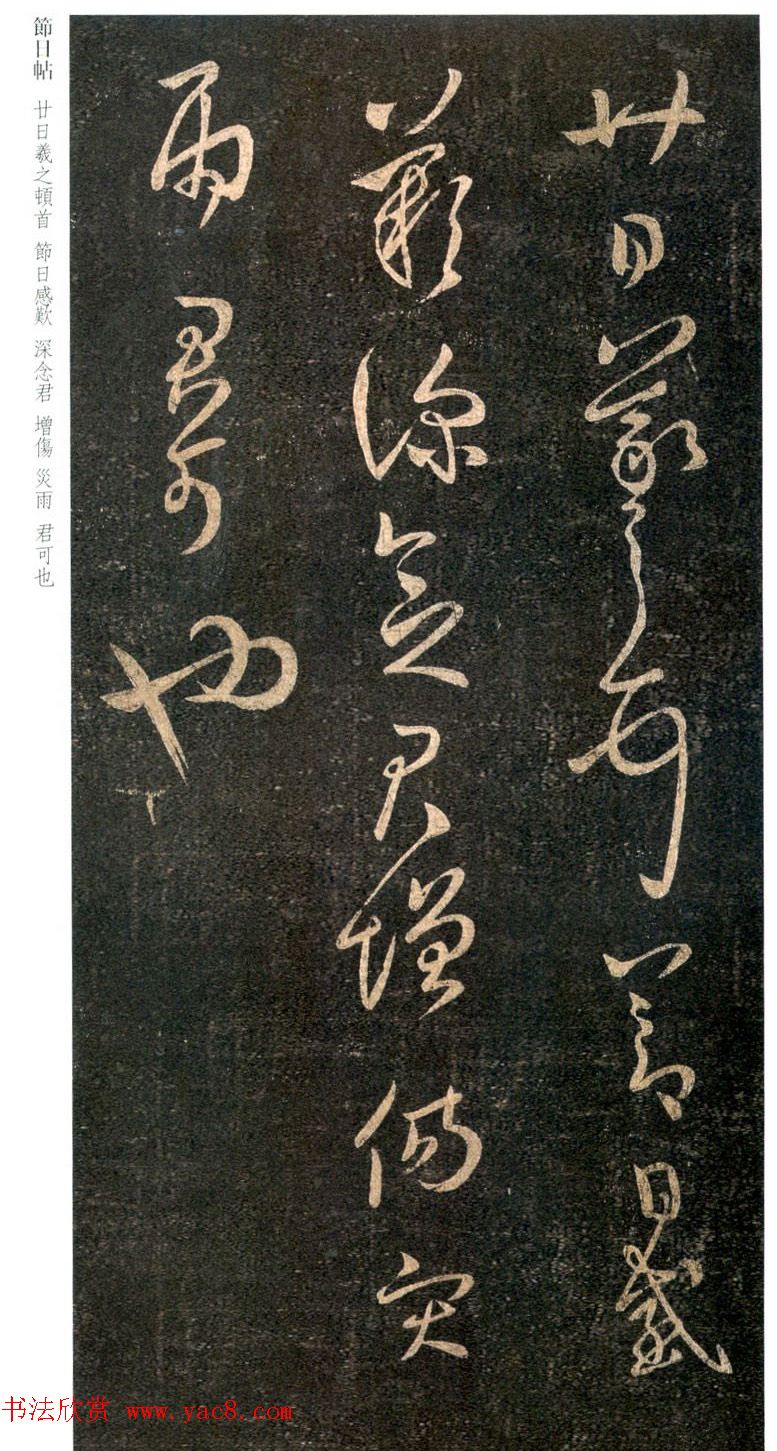 廿日羲之頓首節日感
歎深念君增傷災
雨君可也
節日帖 廿日羲之頓首 節日感歎 深念君 增傷 災雨 君可也
书法欣赏 www.yac8.com